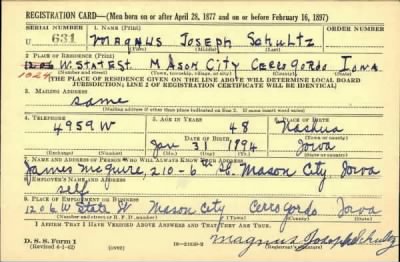 REGISTRATION CARD—(Men born on or after April 28, 1877 and on or before February 16, 1897)
SERIAL NUMBER 1. NAME (Print) ORDER NUMBER
U 631 Magnus Joseph Schultz
(First) (Middle) (Last)
2. PLACE OF RESIDENCE (Print)
1206 W. State St Mason City Cerro Gordo Iowa
1024
(Number and street) (Town, township, village, or city) (County) (State)
[THE PLACE OF RESIDENCE GIVEN ON THE LINE ABOVE WILL DETERMINE LOCAL BOARD
JURISDICTION; LINE 2 OF REGISTRATION CERTIFICATE WILL BE IDENTICAL]
3. MAILING ADDRESS
same
[Mailing address if other than place indicated on line 2. If same insert word same]
4. TELEPHONE 5. AGE IN YEARS 6. PLACE OF BIRTH
4959W 48 Nashua
DATE OF BIRTH (Town or county)
Jan 31 1894 Iowa
(Exchange) (Number) (Mo.) (Day) (Yr.) (State or country)
7. NAME AND ADDRESS OF PERSON WHO WILL ALWAYS KNOW YOUR ADDRESS
James McGuire, 210-6th St. Mason City Iowa
8. EMPLOYER'S NAME AND ADDRESS
self
9. PLACE OF EMPLOYMENT OR BUSINESS
1206 W State St Mason City Cerro Gordo Iowa
(Number and street or R. F. D. number) (Town) (County) (State)
I AFFIRM THAT I HAVE VERIFIED ABOVE ANSWERS AND THAT THEY ARE TRUE.
D. S. S. Form 1
(Revised 4-1-42) (over) Magnus Joseph Schultz
(Registrant's signature)